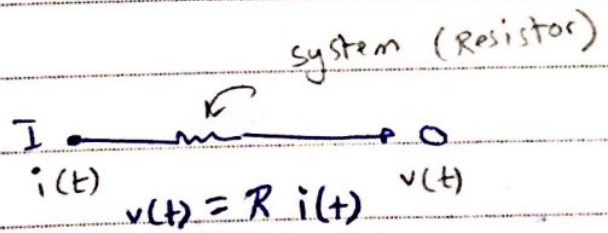 system (Resistor)
I O
i(t) v(t)
v(t) = R i(t)